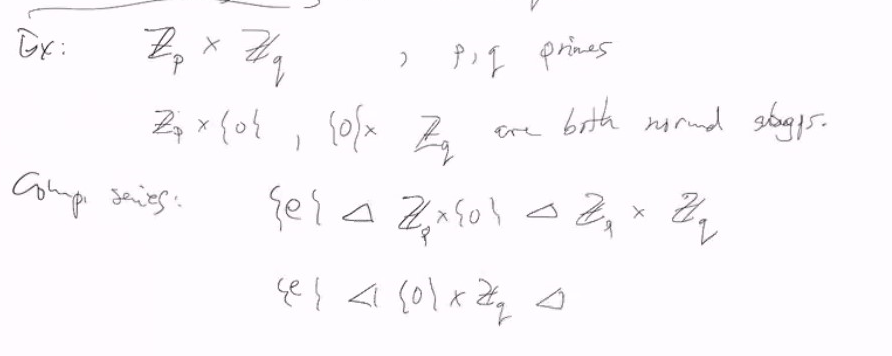 Ex: ℤₚ × ℤ_q , p, q primes
ℤₚ × {0} , {0} × ℤ_q are both normal sbgps.
Comp. series: {e} ◁ ℤₚ × {0} ◁ ℤₚ × ℤ_q
{e} ◁ {0} × ℤ_q ◁